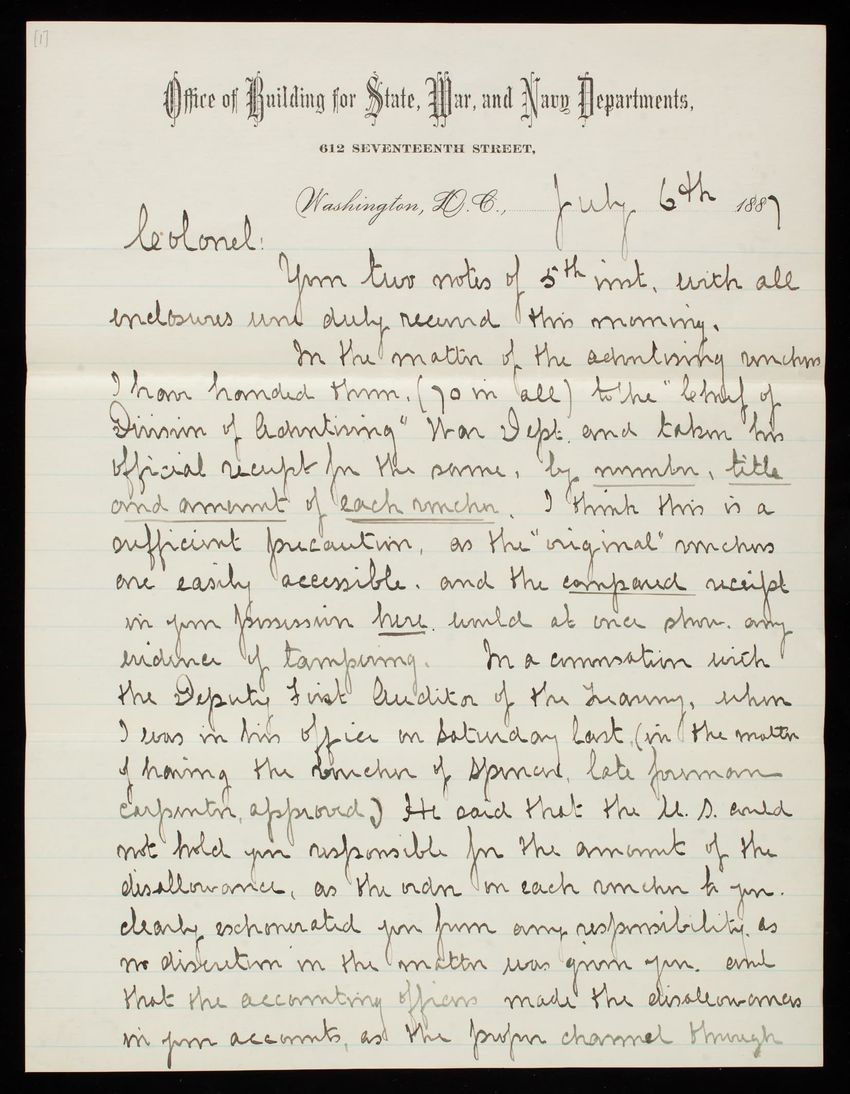 [1]
Office of Building for State, War, and Navy Departments,
612 SEVENTEENTH STREET,
Washington, D.C., July 6th 1887
Colonel:
Your two notes of 5th inst. with all
enclosures were duly received this morning.
In the matter of the advertising vouchers
I have handed them, (70 in all) to the "Chief of
Division of Advertising" War Dept. and taken his
official receipt for the same, by number, title
and amount of each voucher. I think this is a
sufficient precaution, as the "original" vouchers
are easily accessible, and the compared receipt
in your possession here, would at once show any
evidence of tampering. In a conversation with
the Deputy First Auditor of the Treasury, when
I was in his office on Saturday last, (in the matter
of having the voucher of Spencer, late foreman
carpenter, approved,) He said that the U.S. could
not hold you responsible for the amount of the
disallowance, as the order on each voucher to you,
clearly eschonerated you from any responsibility, as
no discretion in the matter was given you, and
that the accounting officers made the disallowances
in your accounts, as the proper channel through